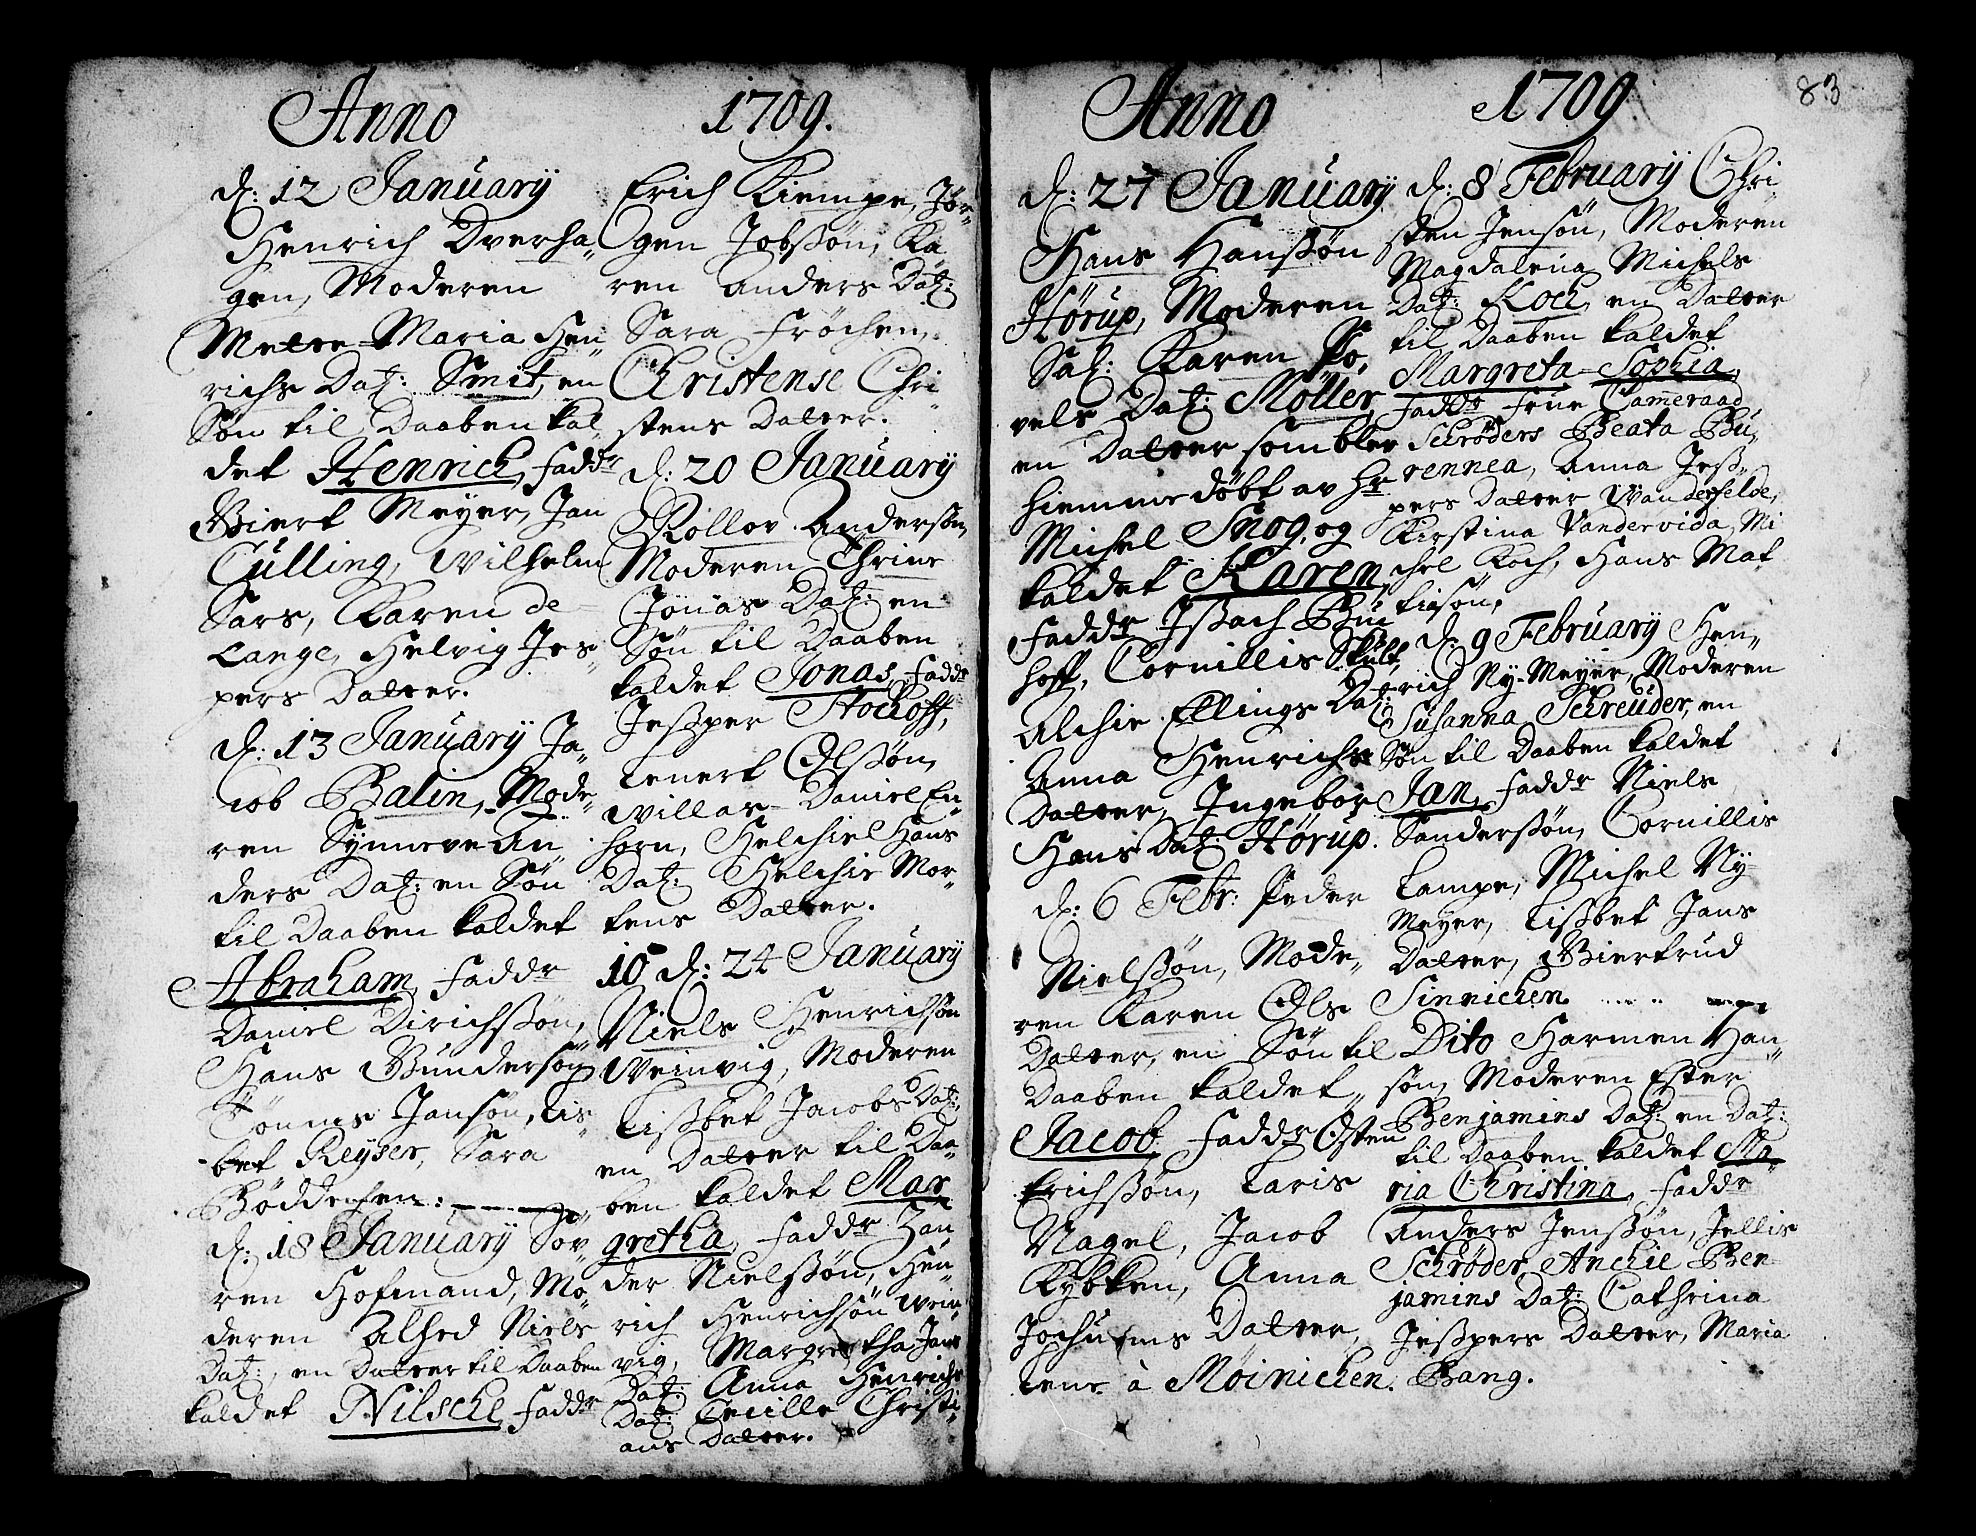 Anno 1709.
d: 12 January
Henrich Dverha„
gen, Moderen
Mette-Maria Hen„
richs Dat: Smit, en
Søn til Daaben kal„
det Henrich, Faddr
Biert Meyer, Jan
Culling, Wilhelm
Sars, Karen de
Lange, Helvig Jes„
pers Datter.
d: 13 January Ja„
cob Balin, Mode„
ren Synneve An„
ders Dat: en Søn
til Daaben kaldet
Abraham, Faddr
Daniel Dirichssøn,
Hans Gundersøn
Tönnis Jansøn, Lis„
bet Reyser, Sara
Böddechen:
d: 18 January Søv„
ren Hofmand, Mo„
deren Alhed Niels
Dat:, en Datter til Daaben
kaldet Nilsche, Faddr
Erich Kiempe, Jör„
gen Jobssøn, Ka„
ren Anders Dat:
Sara Fröchen,
Christense Chri„
stens Datter.
d: 20 January
Rollov Anderssøn,
Moderen Thrine
Jonas Dat: en
Søn til Daaben
kaldet Jonas, Faddr
Jessper Stockoff,
Lenert Olssøn,
Willas Daniel En„
horn, Helchiel Hans
Dat: Helchie Mor„
tens Datter.
10 d: 24 January
Niels Henrichsøn
Weinvig, Moderen
Lissbet Jacobs Dat:,
en Datter til Daa„
ben kaldet Mar„
gretha, Faddr Han„
der Nielssøn, Hen„
rich Henrichsøn Wein„
vig, Margretha Jans
Dat: Anna Henrichs
Dat: Cecille Christi„
ans Datter.
Anno 1709. 83
d: 27 January
Hans Hanssøn
Hörup, Moderen
Sal: Karen Po„
vels Dat: Møller,
en Datter som blev
hiemme döbt av Hr
Michel Snog, og
kaldet Karen,
Faddr Issach Buc„
hoff, Cornillis Skult,
Alchie Ellings Dat:
Anna Henrichs
Datter, Ingebor
Hans Dat: Hörup.
d: 6 Febr: Peder
Nielssøn, Mode„
ren Karen Ols
Datter, en Søn til
Daaben kaldet„
Jacob, Faddr Osten
Erichssøn, Laris
Nagel, Jacob
Rybken, Anna
Jochums Datter,
Lene à Møinichen.
d: 8 February Chri„
sten Jensøn, Moderen
Magdalena Michels
Dat: Koch, en Datter
til Daaben kaldet
Margreta-Sophia,
Faddr Frue Cameraad
Schrøders Beata Bu„
rennea, Anna Jess„
pers Datter Wanderfelde,
Kirstina Vandervida, Mi„
chel Koch, Hans Mat„
tissøn,
d: 9 February Hen„
rich Ny-Meyer, Moderen
Susanna Schreuder, en
Søn til Daaben kaldet
Jan, Faddr Niels
Sanderssøn, Cornillis
Lampe, Michel Ny-
Meyer, Lissbet Jans
Datter, Biertrud
Sinnichen.
Dito Harmen Han„
søn, Moderen Ester
Benjamins Dat: en Dat:
til Daaben kaldet Ma„
ria Christina, Faddr
Anders Jenssøn, Jellis
Schrøder, Anchie Ben„
jamins Dat: Cathrina
Jesspers Datter, Maria
Bang.